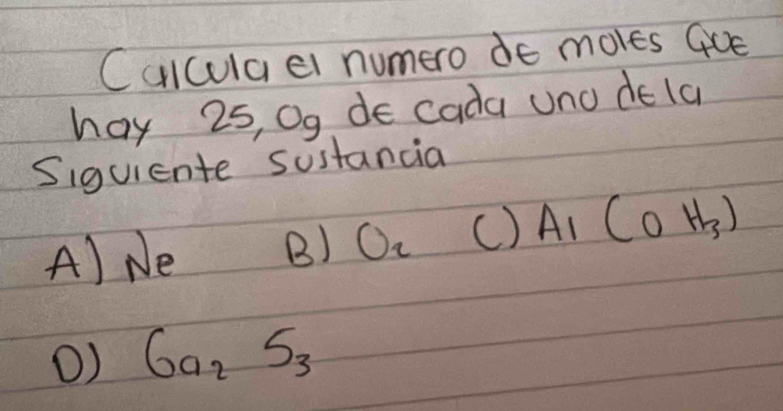 Calcula el numero de moles que
hay 25,0g de cada uno de la
Siguiente sustancia
A) Ne B) O₂ C) Al (O H₃)
D) Ga₂ S₃